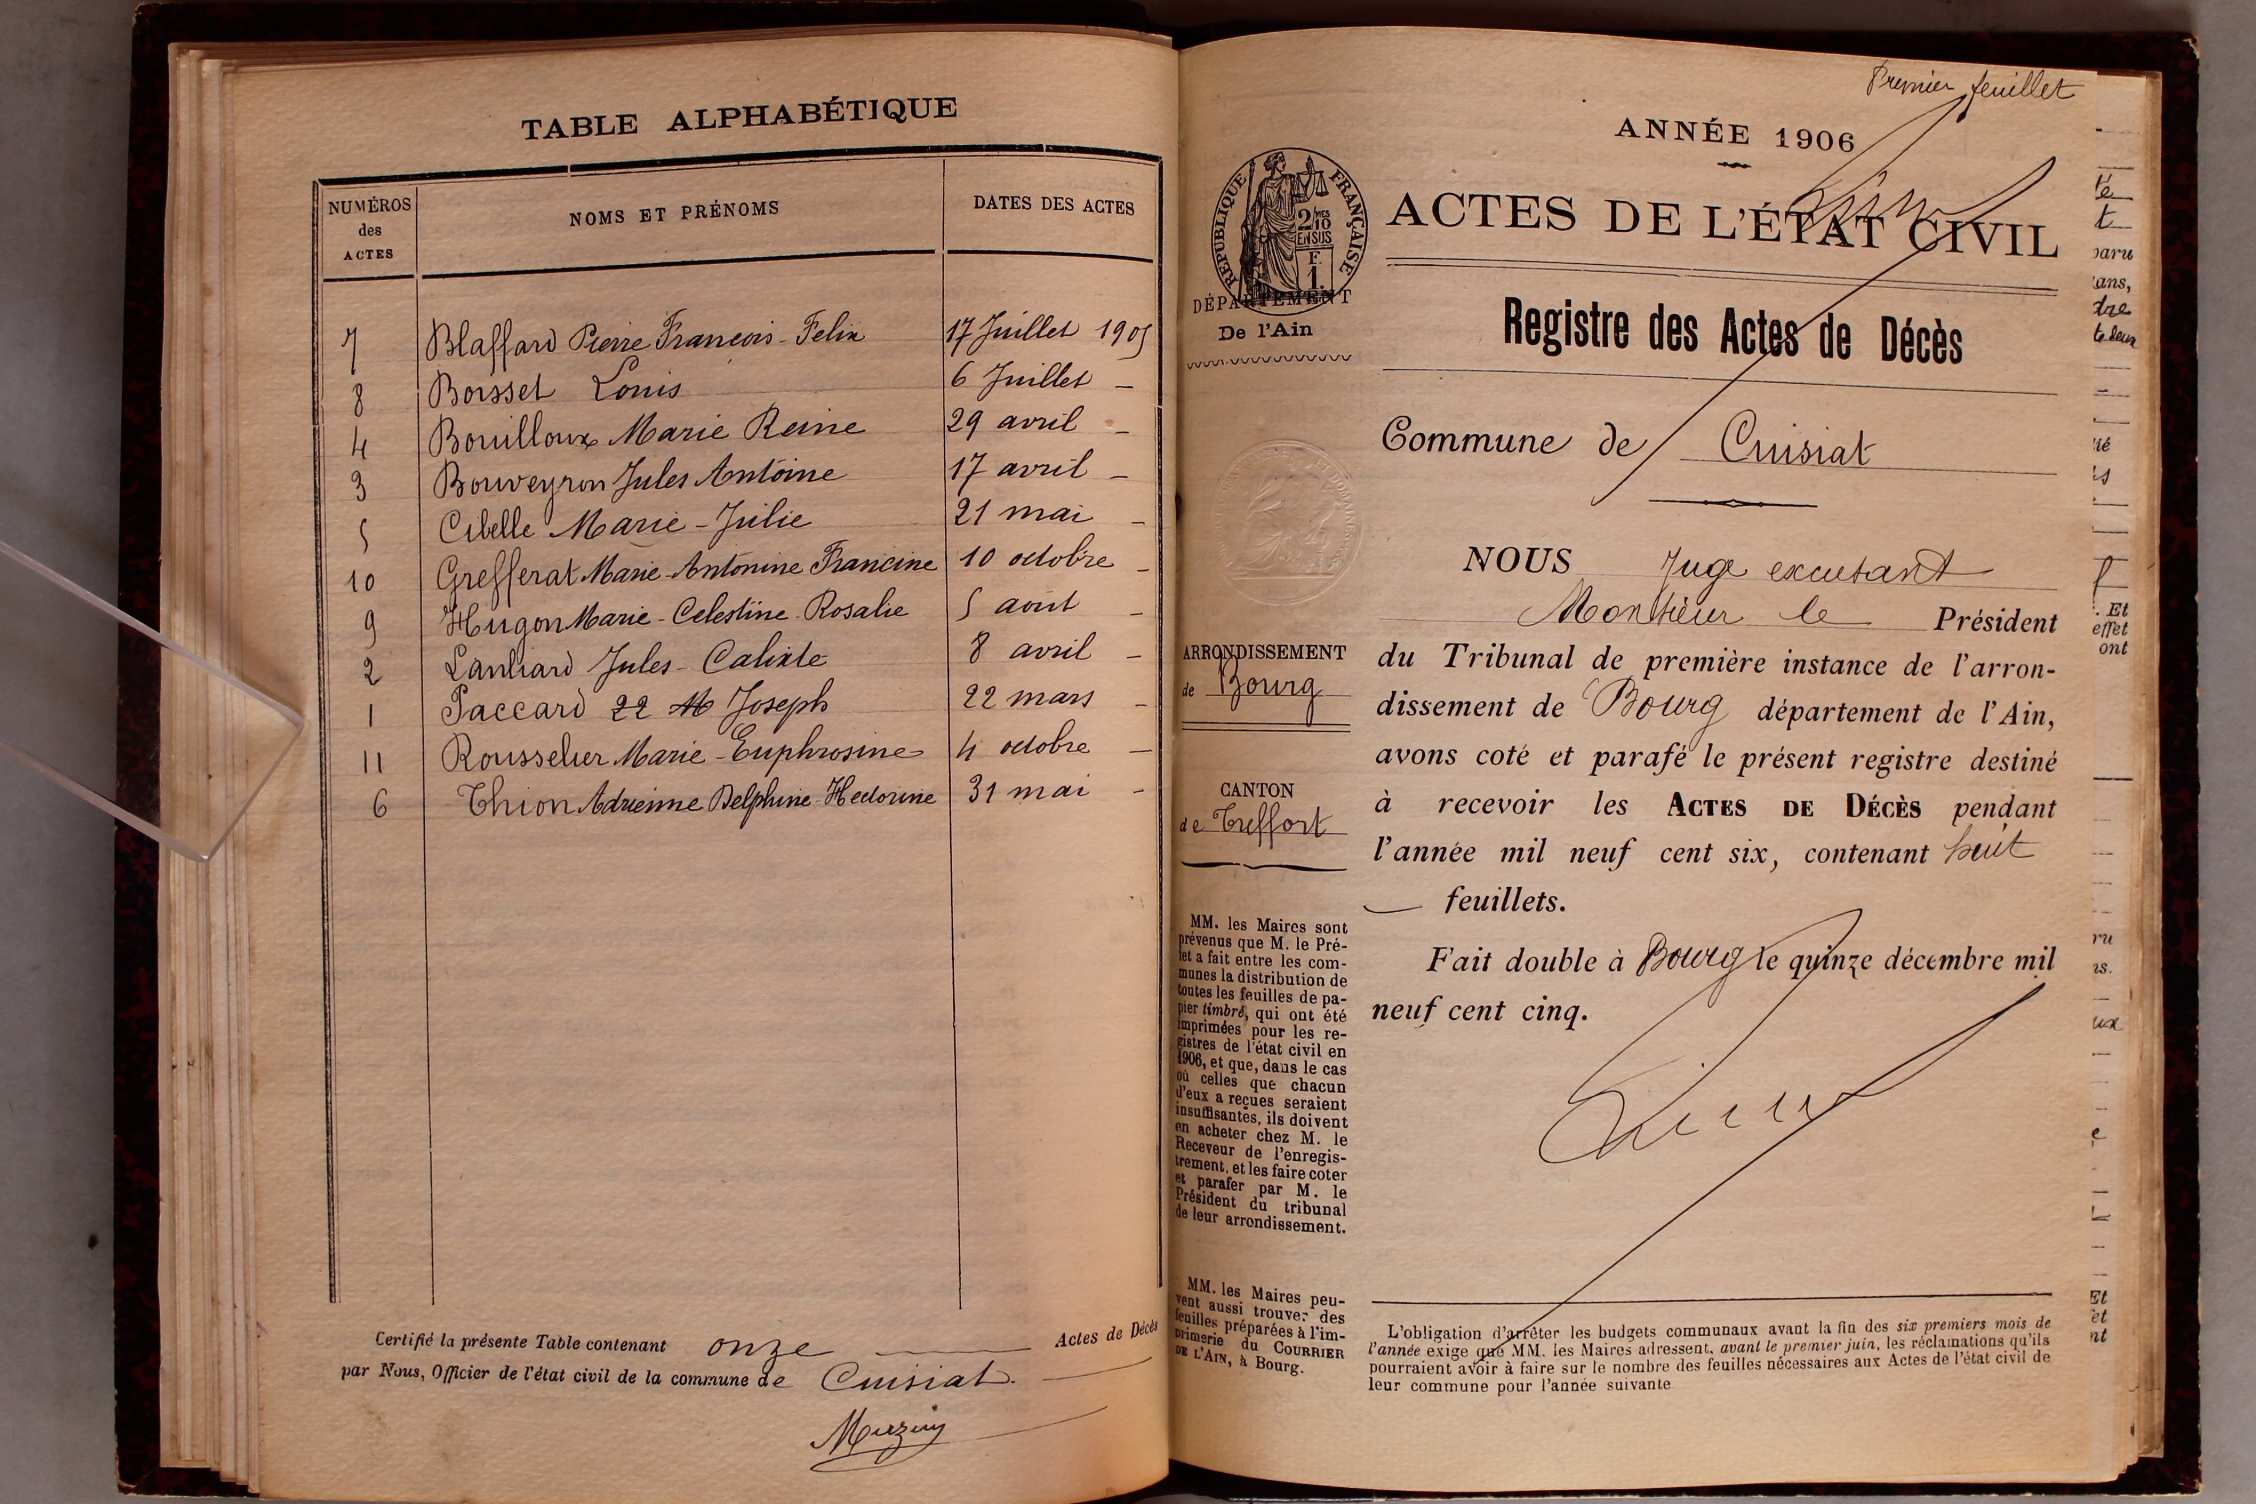 TABLE ALPHABÉTIQUE
NUMÉROS des ACTES
NOMS ET PRÉNOMS
DATES DES ACTES
7 Blaffard Pierre François-Felix 17 Juillet 1905
8 Boisset Louis 6 Juillet –
4 Bouilloux Marie Reine 29 avril –
3 Bouveyron Jules Antoine 17 avril –
5 Cibelle Marie-Julie 21 mai –
10 Grefferat Marie-Antonine Francine 10 octobre –
9 Hugon Marie-Celestine Rosalie 5 août –
2 Lanliard Jules-Calixte 8 avril –
1 Paccard 22 M Joseph 22 mars –
11 Rousselier Marie-Euphrosine 4 octobre –
6 Thion Adrienne Delphine-Hectorine 31 mai –
Certifié la présente Table contenant onze Actes de Décès
par Nous, Officier de l'état civil de la commune de Cuisiat.
Premier feuillet
ANNÉE 1906
ACTES DE L'ÉTAT CIVIL
Registre des Actes de Décès
Commune de Cuisiat
RÉPUBLIQUE FRANÇAISE
2/10 MES
EN SUS
F.
1.
DÉPARTEMENT
De l'Ain
ARRONDISSEMENT
de Bourg
CANTON
de Treffort
MM. les Maires sont
prévenus que M. le Pré-
fet a fait entre les com-
munes la distribution de
toutes les feuilles de pa-
pier timbré, qui ont été
imprimées pour les re-
gistres de l'état civil en
1906, et que, dans le cas
où celles que chacun
d'eux a reçues seraient
insuffisantes, ils doivent
en acheter chez M. le
Receveur de l'enregis-
trement, et les faire coter
et parafer par M. le
Président du tribunal
de leur arrondissement.
MM. les Maires peu-
vent aussi trouver des
feuilles préparées à l'im-
primerie du COURRIER
DE L'AIN, à Bourg.
NOUS Juge excusant
Monsieur le Président
du Tribunal de première instance de l'arron-
dissement de Bourg département de l'Ain,
avons coté et parafé le présent registre destiné
à recevoir les ACTES DE DÉCÈS pendant
l'année mil neuf cent six, contenant huit
feuillets.
Fait double à Bourg le quinze décembre mil
neuf cent cinq.
L'obligation d'arrêter les budgets communaux avant la fin des six premiers mois de
l'année exige que MM. les Maires adressent, avant le premier juin, les réclamations qu'ils
pourraient avoir à faire sur le nombre des feuilles nécessaires aux Actes de l'état civil de
leur commune pour l'année suivante